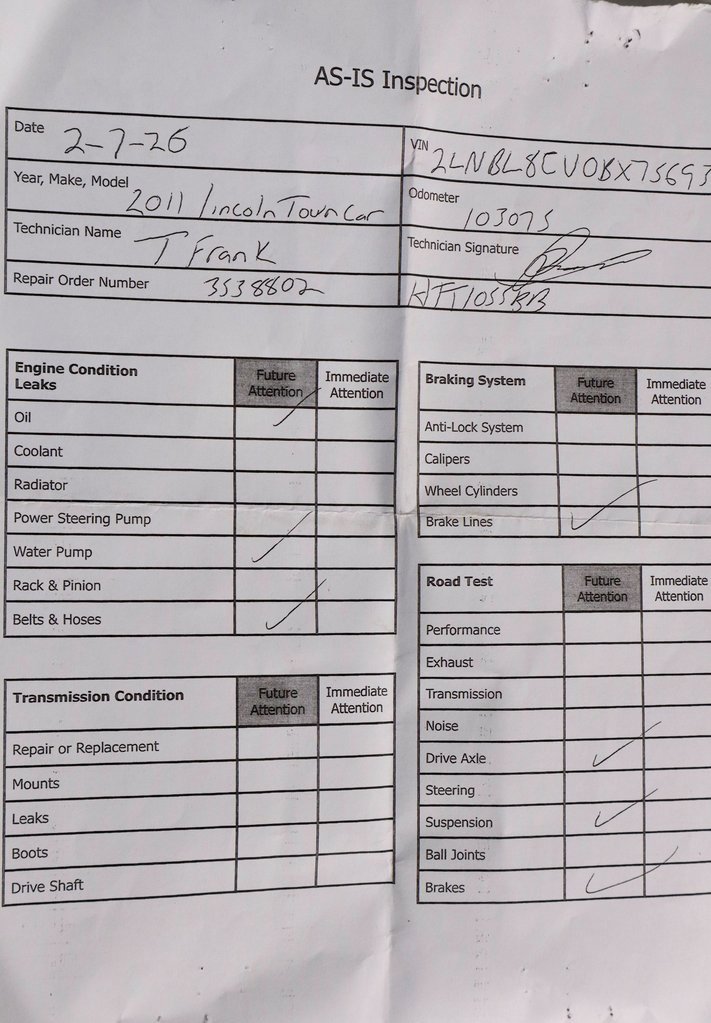 AS-IS Inspection
Date 2-7-26
VIN 2LNBL8CV0BX75693
Year, Make, Model 2011 lincoln Town Car
Odometer 103075
Technician Name T Frank
Technician Signature
Repair Order Number 3538802
Engine Condition Leaks Future Attention Immediate Attention
Oil ✓
Coolant
Radiator
Power Steering Pump
Water Pump ✓
Rack & Pinion
Belts & Hoses ✓
Transmission Condition Future Attention Immediate Attention
Repair or Replacement
Mounts
Leaks
Boots
Drive Shaft
Braking System Future Attention Immediate Attention
Anti-Lock System
Calipers
Wheel Cylinders
Brake Lines ✓
Road Test Future Attention Immediate Attention
Performance
Exhaust
Transmission
Noise
Drive Axle ✓
Steering
Suspension ✓
Ball Joints
Brakes ✓